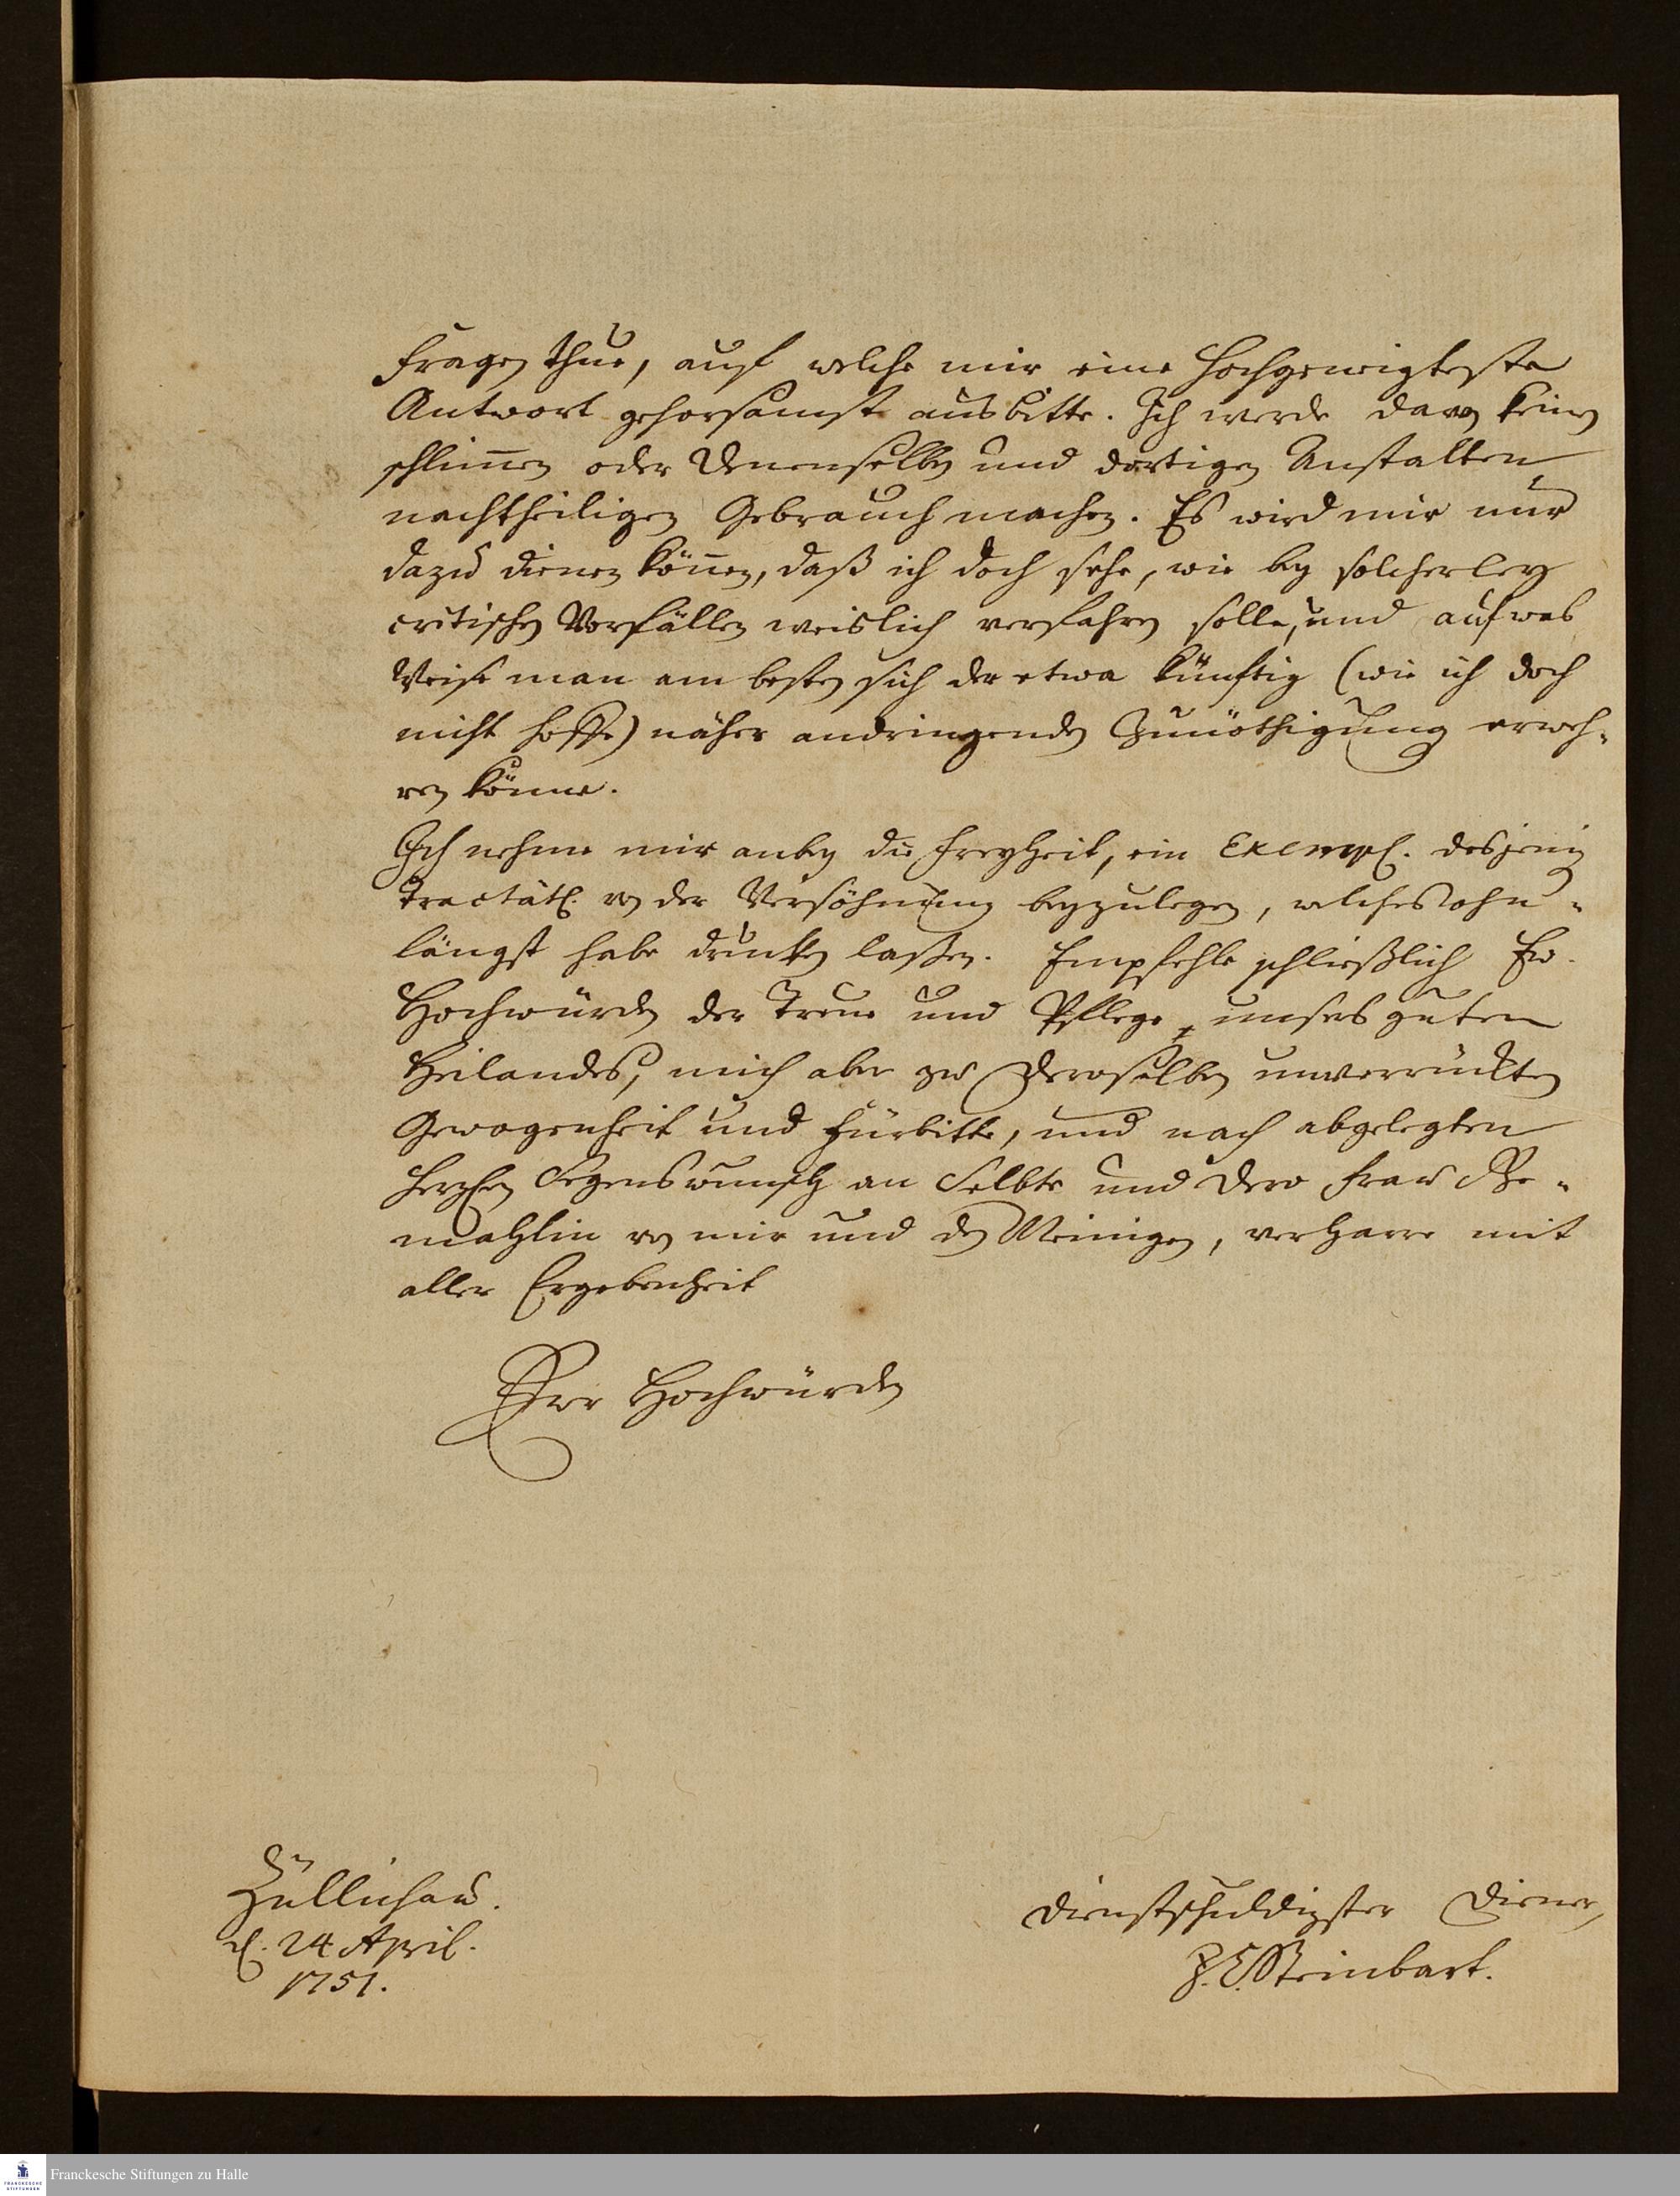 Fragen thue, auf welche mir eine Hochgeneigteste
Antwort gehorsamst ausbitte. Ich werde davon keinen
schlim̄en oder Denenselben und dortigen Anstalten
nachtheiligen Gebrauch machen. Es wird mir nur
dazu dienen kön̄en, daß ich doch sehe, wie bey solcherley
critischen Vorfällen weislich verfahren solle, und auf was
Weise man am besten sich der etwa künftig (wie ich doch
nicht hoffe) näher andringenden Zunöthigung erweh-
ren könne.
Ich nehme mir anbey die Freyheit, ein Exempl. desjenigen
Tractätl. von der Versöhnung beyzulegen, welches ohn-
längst habe drucken laßen. Empfehle schließlich Ew.
Hochwürden der Treue und Pflege unsers guten
Heilandes, mich aber zu Deroselben unverrückten
Gewogenheit und Fürbitte, und nach abgelegten
herzlen Segenswunsch an Selbte und Dero Frau Ge-
mahlin von mir und den Meinigen, verharre mit
aller Ergebenheit
Ewr Hochwürden
Züllichau.
d. 24 April.
1751.
dienstschuldigster Diener,
J. C. Steinbart.
Franckesche Stiftungen zu Halle
FRANCKESCHE
STIFTUNGEN